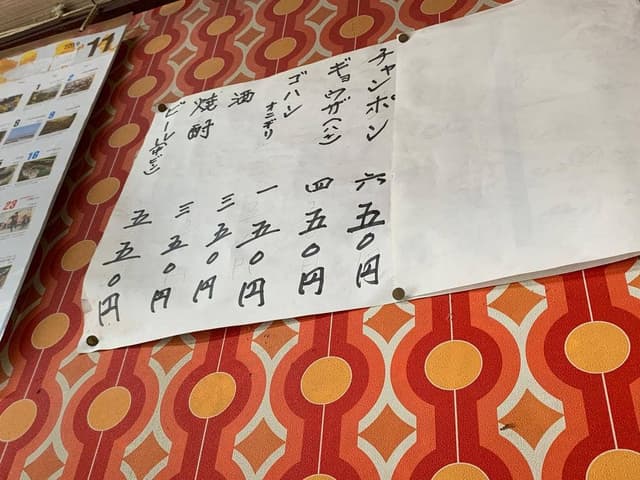 チャンポン 六五〇円
ギョウザ(八ケ) 四五〇円
ゴハン オニギリ 一五〇円
酒 三五〇円
焼酎 三五〇円
ビール(中ビン) 五五〇円
11